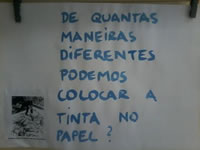 DE QUANTAS
MANEIRAS
DIFERENTES
PODEMOS
COLOCAR A
TINTA NO
PAPEL?